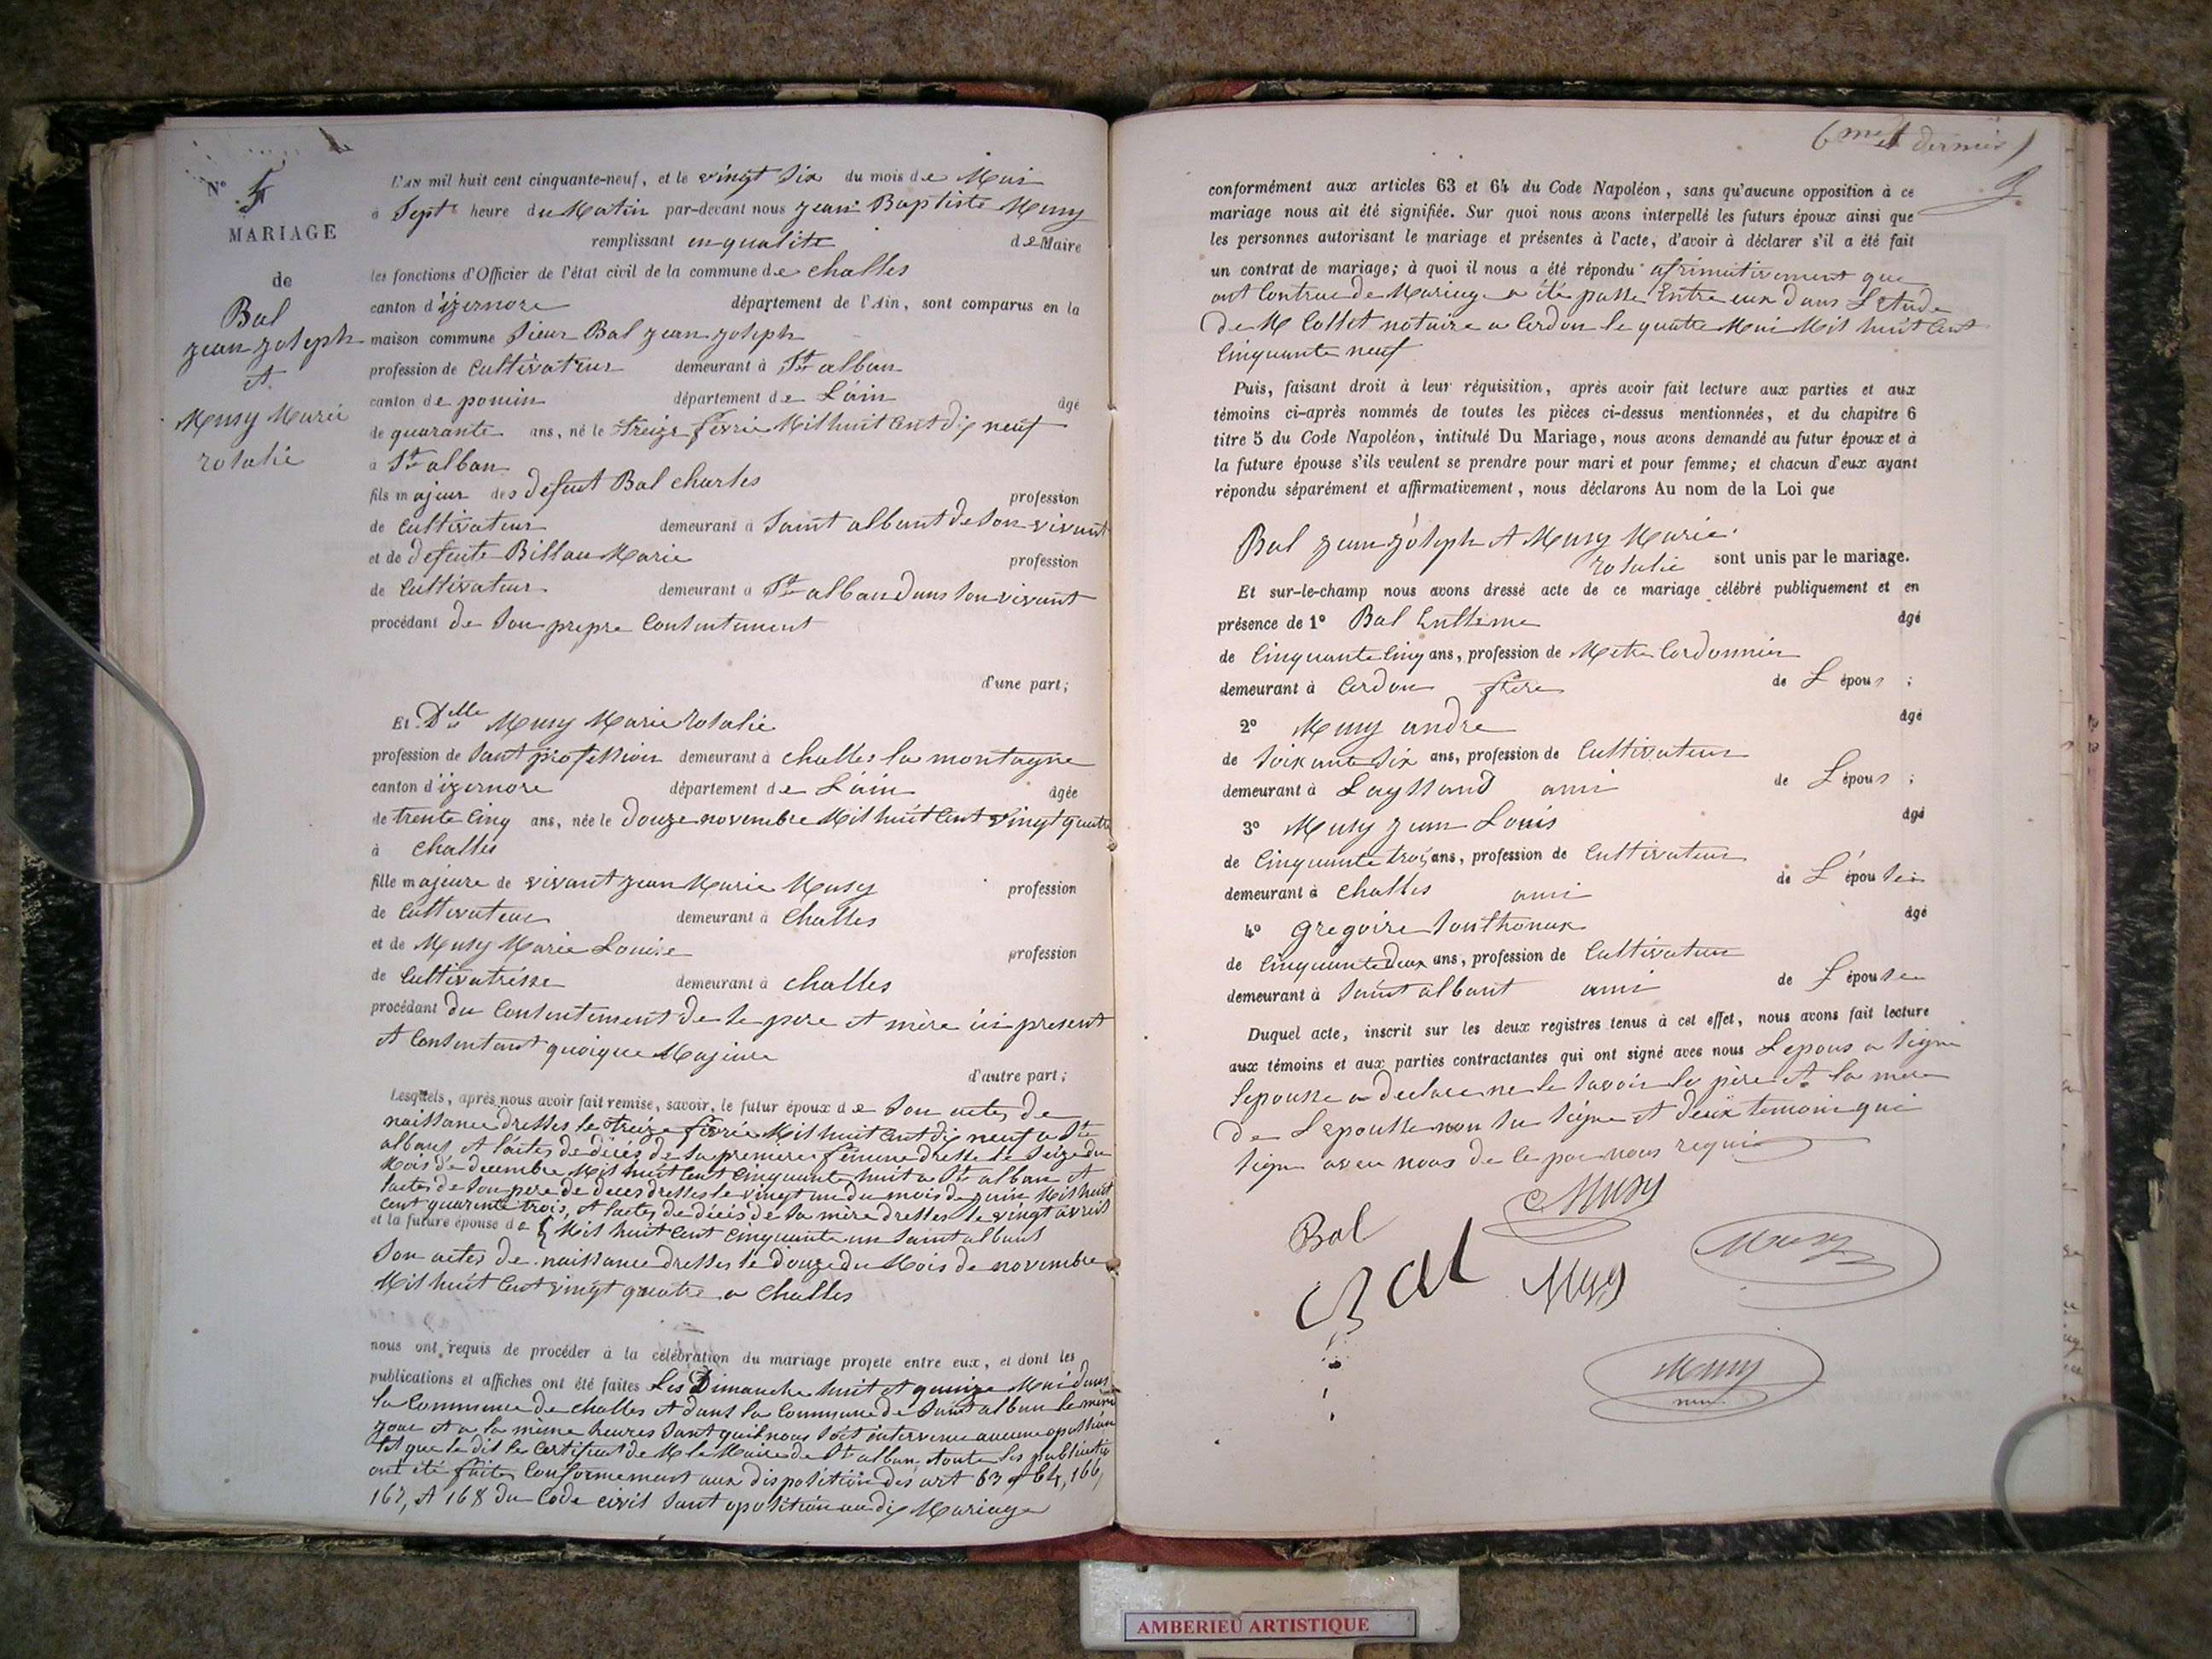 N° 4
MARIAGE
de
Bal
jean joseph
et
Musy Marie
rosalie
L'AN mil huit cent cinquante-neuf, et le vingt six du mois de Mai
à Sept heure du Matin par-devant nous jean Baptiste Musy
remplissant en qualite de Maire
les fonctions d'Officier de l'état civil de la commune de challes
canton d'izernore département de l'Ain, sont comparus en la
maison commune Sieur Bal jean joseph
profession de Cultivateur demeurant à St alban
canton de poncin département de L'ain âgé
de quarante ans, né le treize fevrié Mil huit Cent dix neuf
à St alban
fils majeur des defent Bal charles profession
de Cultivateur demeurant à Saint albant de Son vivant
et de defente Billau Marie profession
de Cultivateur demeurant à St alban dans Son vivant
procédant de Son propre Consentement
d'une part;
Et Delle Musy Marie rosalie
profession de Sant profession demeurant à challes la montagne
canton d'izernore département de L'ain âgée
de trente Cinq ans, née le Douze novembre Mil huit Cent vingt quatre
à challes
fille majeure de vivant jean Marie Musy profession
de Cultivateur demeurant à Challes
et de Musy Marie Louise profession
de Cultivatrisse demeurant à challes
procédant du Consentement de Se pere et mère ici present
et Consentant quoique Majeure
d'autre part;
Lesquels, après nous avoir fait remise, savoir, le futur époux de Son actes de
naissance dresses le treize fevrié Mil huit Cent dix neuf a St
albans et l'actes de décés de Sa premiere femme dresse le Seize du
Mois de decembre Mil huit Cent Cinquante huit a St alban et
l'actes de Son pere de deces dresses le vingt un du mois de juin Mil huit
Cent quarente trois, et l'actes de décés de Sa mère dresses le vingt avril
et la future épouse de Mil huit Cent Cinquante un Saint albans
Son actes de naissance dresses le douze du Mois de novembre
Mil huit Cent vingt quatre a Challes
nous ont requis de procéder à la célébration du mariage projeté entre eux, et dont les
publications et affiches ont été faites Les Dimanche huit et quinze Mai dans
la Commune de challes et dans la Commune de Saint alban le même
jour et a la même heures Sant quil nous Soit intervenu aucune oposition
tel que le dit le Certificat de M le Maire de St alban, toute les publication
ont été faites Conformement aux disposition des art 63 et 64, 166,
167, et 168 du Code civil Sant oposition audit Mariage
6me et dernier
9
conformément aux articles 63 et 64 du Code Napoléon, sans qu'aucune opposition à ce
mariage nous ait été signifiée. Sur quoi nous avons interpellé les futurs époux ainsi que
les personnes autorisant le mariage et présentes à l'acte, d'avoir à déclarer s'il a été fait
un contrat de mariage; à quoi il nous a été répondu afrimativement que
ont Contrac de Mariage a été passe Entre eux dans L'Etude
de M Collet notaire a Cerdon le quatre Mai Mil huit Cent
Cinquante neuf
Puis, faisant droit à leur réquisition, après avoir fait lecture aux parties et aux
témoins ci-après nommés de toutes les pièces ci-dessus mentionnées, et du chapitre 6
titre 5 du Code Napoléon, intitulé Du Mariage, nous avons demandé au futur époux et à
la future épouse s'ils veulent se prendre pour mari et pour femme; et chacun d'eux ayant
répondu séparément et affirmativement, nous déclarons Au nom de la Loi que
Bal jean joseph et Musy Marie
rosalie sont unis par le mariage.
Et sur-le-champ nous avons dressé acte de ce mariage célébré publiquement et en
présence de 1° Bal âgé
de Cinquante Cinq ans, profession de Metre Cordonnier
demeurant à Cerdon frère de L époux;
2° Musy andre âgé
de Soixante Six ans, profession de Cultivateur
demeurant à Leyssard ami de L époux;
3° Musy jean Louis âgé
de Cinquante trois ans, profession de Cultivateur
demeurant à Challes ami de L'épouse
4° gregoire Sonthonax âgé
de Cinquante deux ans, profession de Cultivateur
demeurant à Saint albant ami de L épouse
Duquel acte, inscrit sur les deux registres tenus à cet effet, nous avons fait lecture
aux témoins et aux parties contractantes qui ont signé avec nous Lepoux a Signe
Lepousse a declare ne le Savoir le père et la mère
de Lepousse non Su Signe et deux temoin qui
Signe avec nous de le par nous requis
Bal
Musy
Bal
Musy
Musy
Musy
AMBERIEU ARTISTIQUE